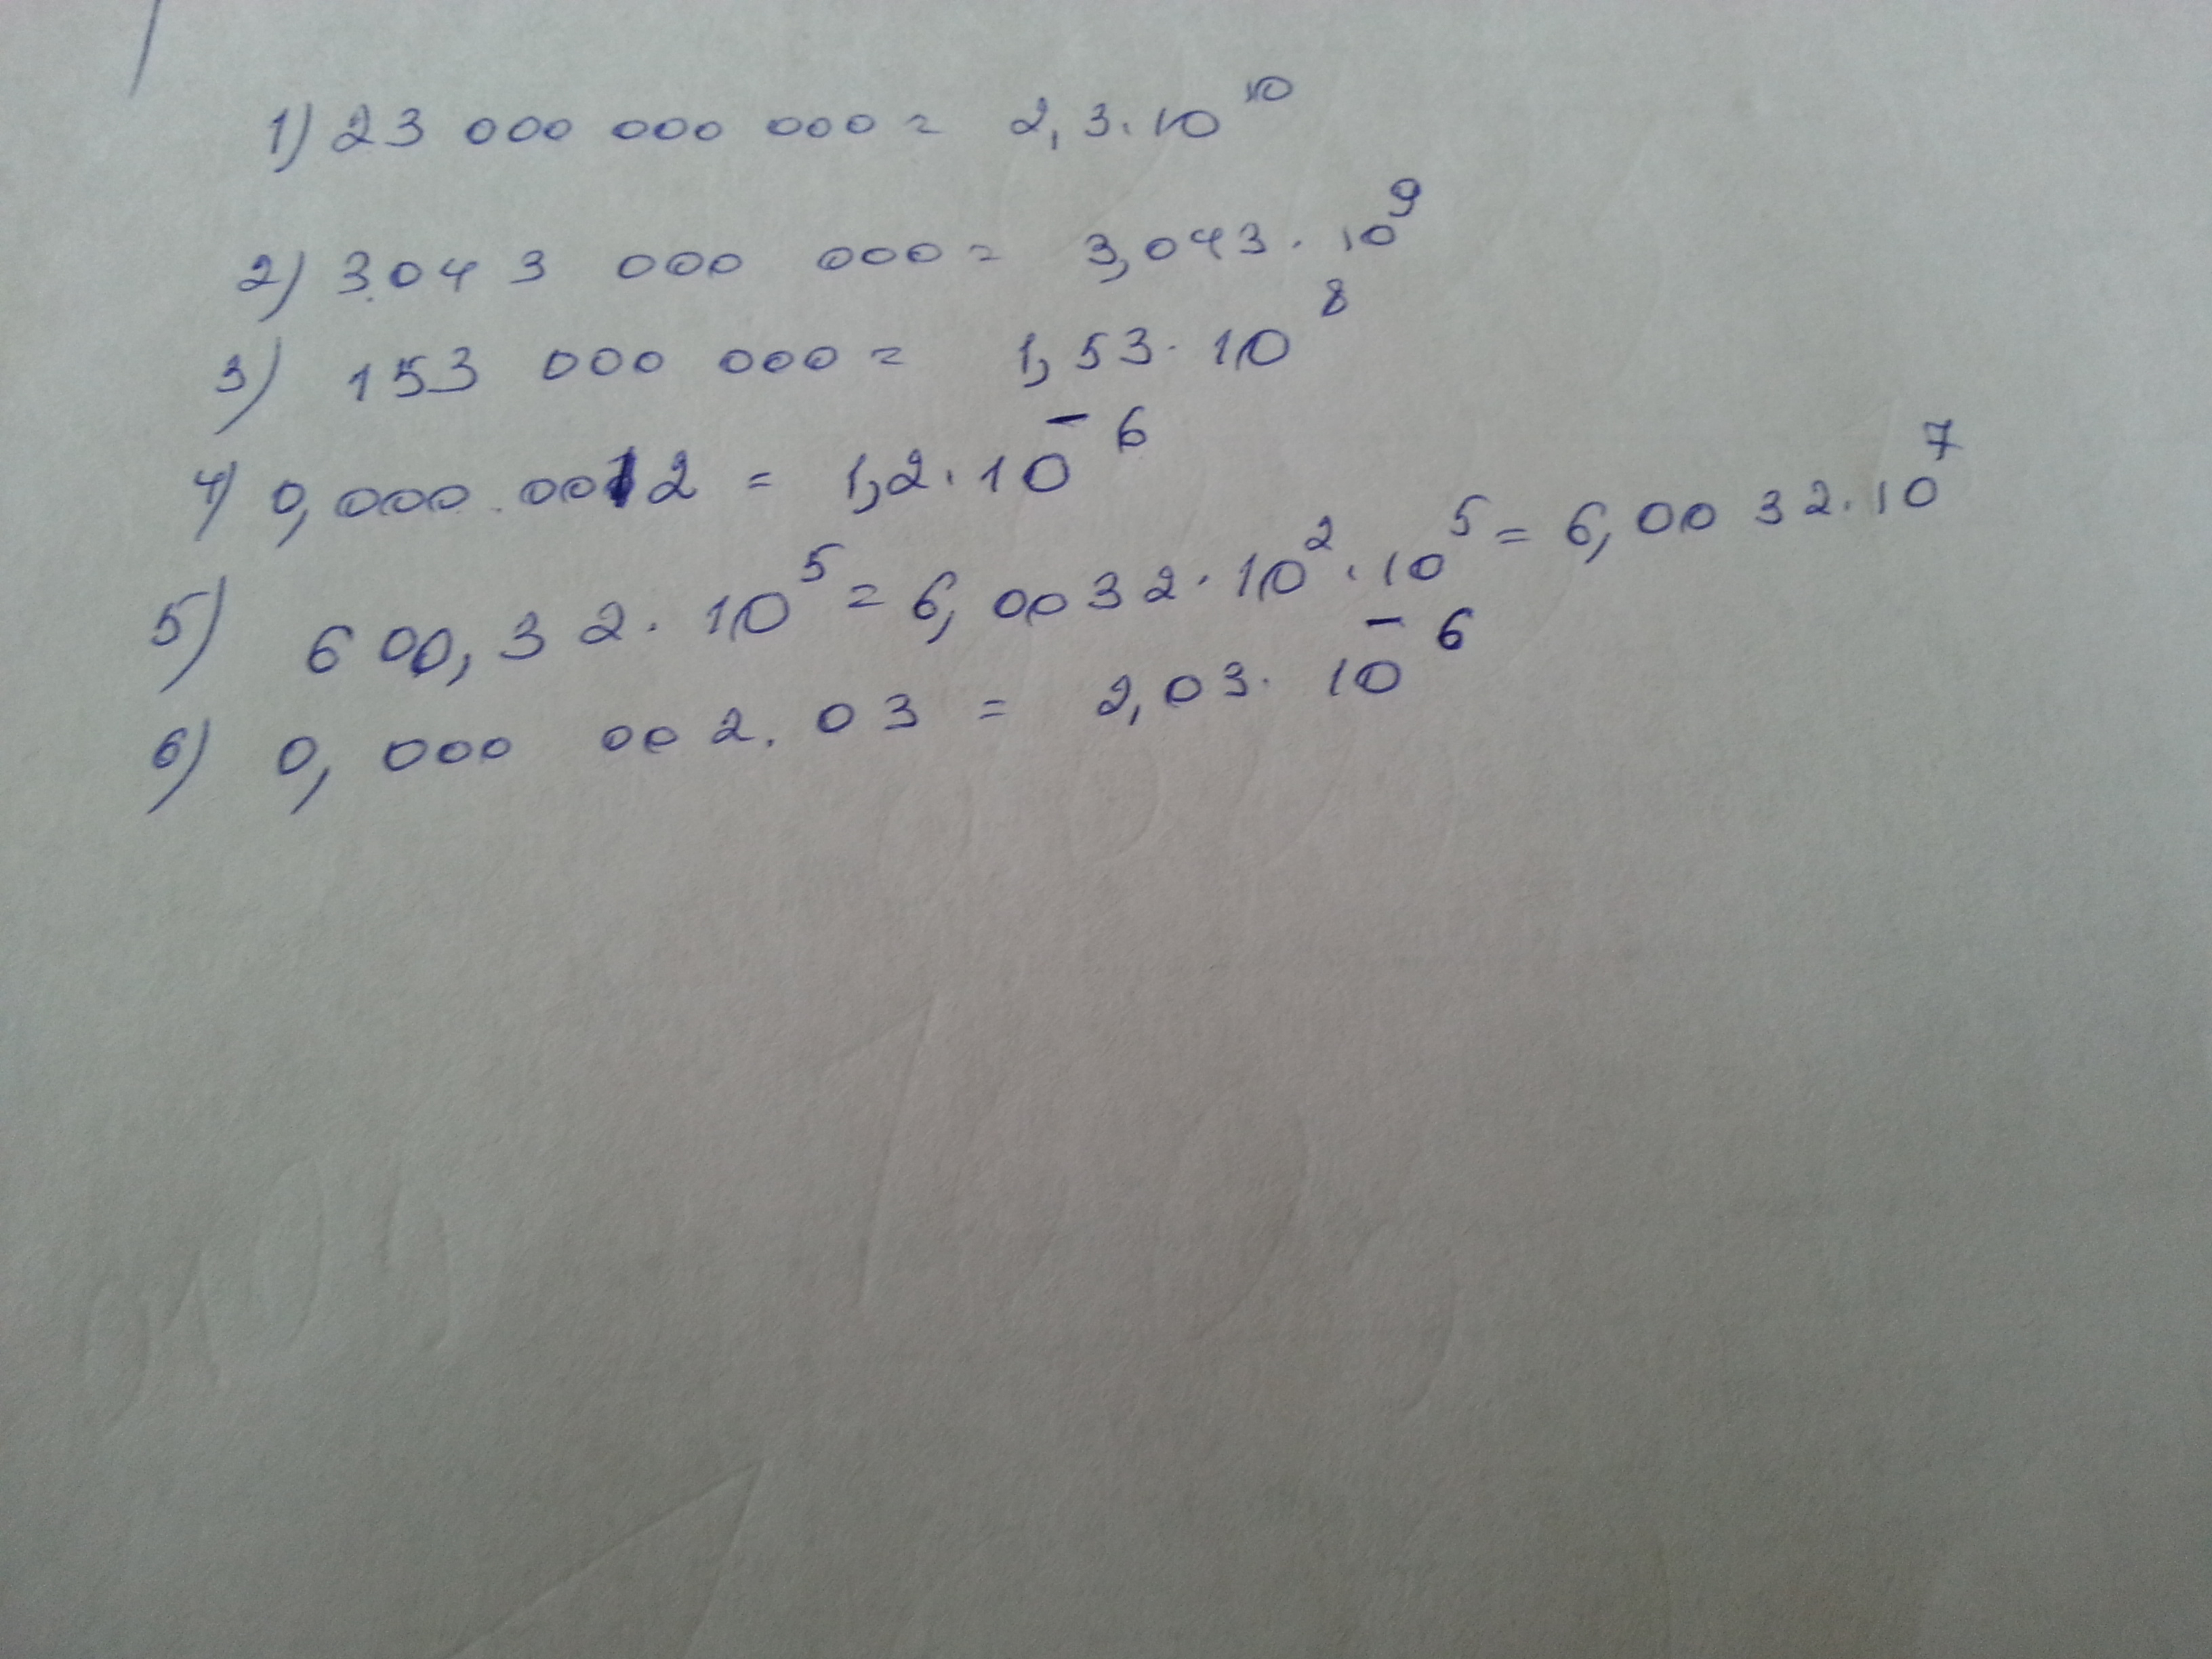 1) 23 000 000 000 = 2,3·10¹⁰
2) 3.043 000 000 = 3,043·10⁹
3) 153 000 000 = 1,53·10⁸
4) 0,000.0012 = 1,2·10⁻⁶
5) 600,32·10⁵ = 6,0032·10²·10⁵ = 6,0032·10⁷
6) 0,000 002.03 = 2,03·10⁻⁶